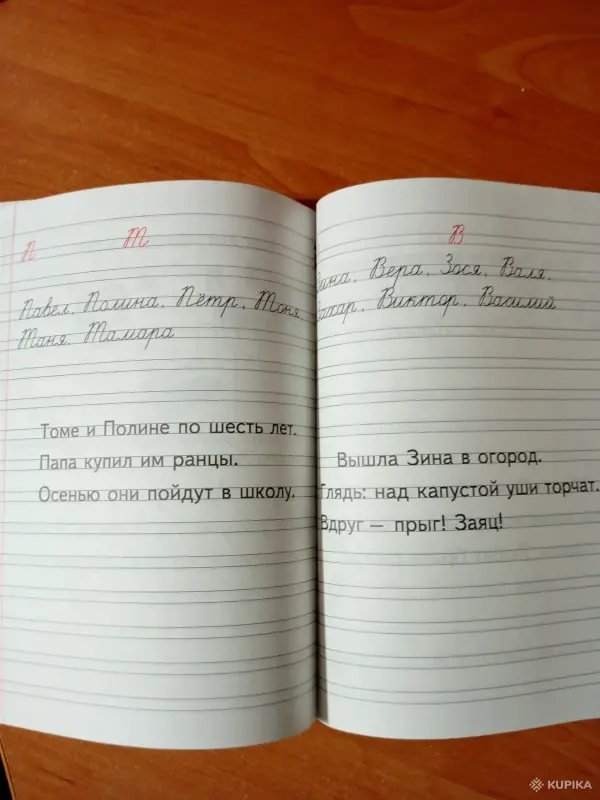 П Т
Павел, Полина, Пётр, Тоня,
Таня, Тамара
Томе и Полине по шесть лет.
Папа купил им ранцы.
Осенью они пойдут в школу.
В
Вера, Зося, Валя,
Виктор, Василий
Вышла Зина в огород.
Глядь: над капустой уши торчат.
Вдруг — прыг! Заяц!
KUPIKA